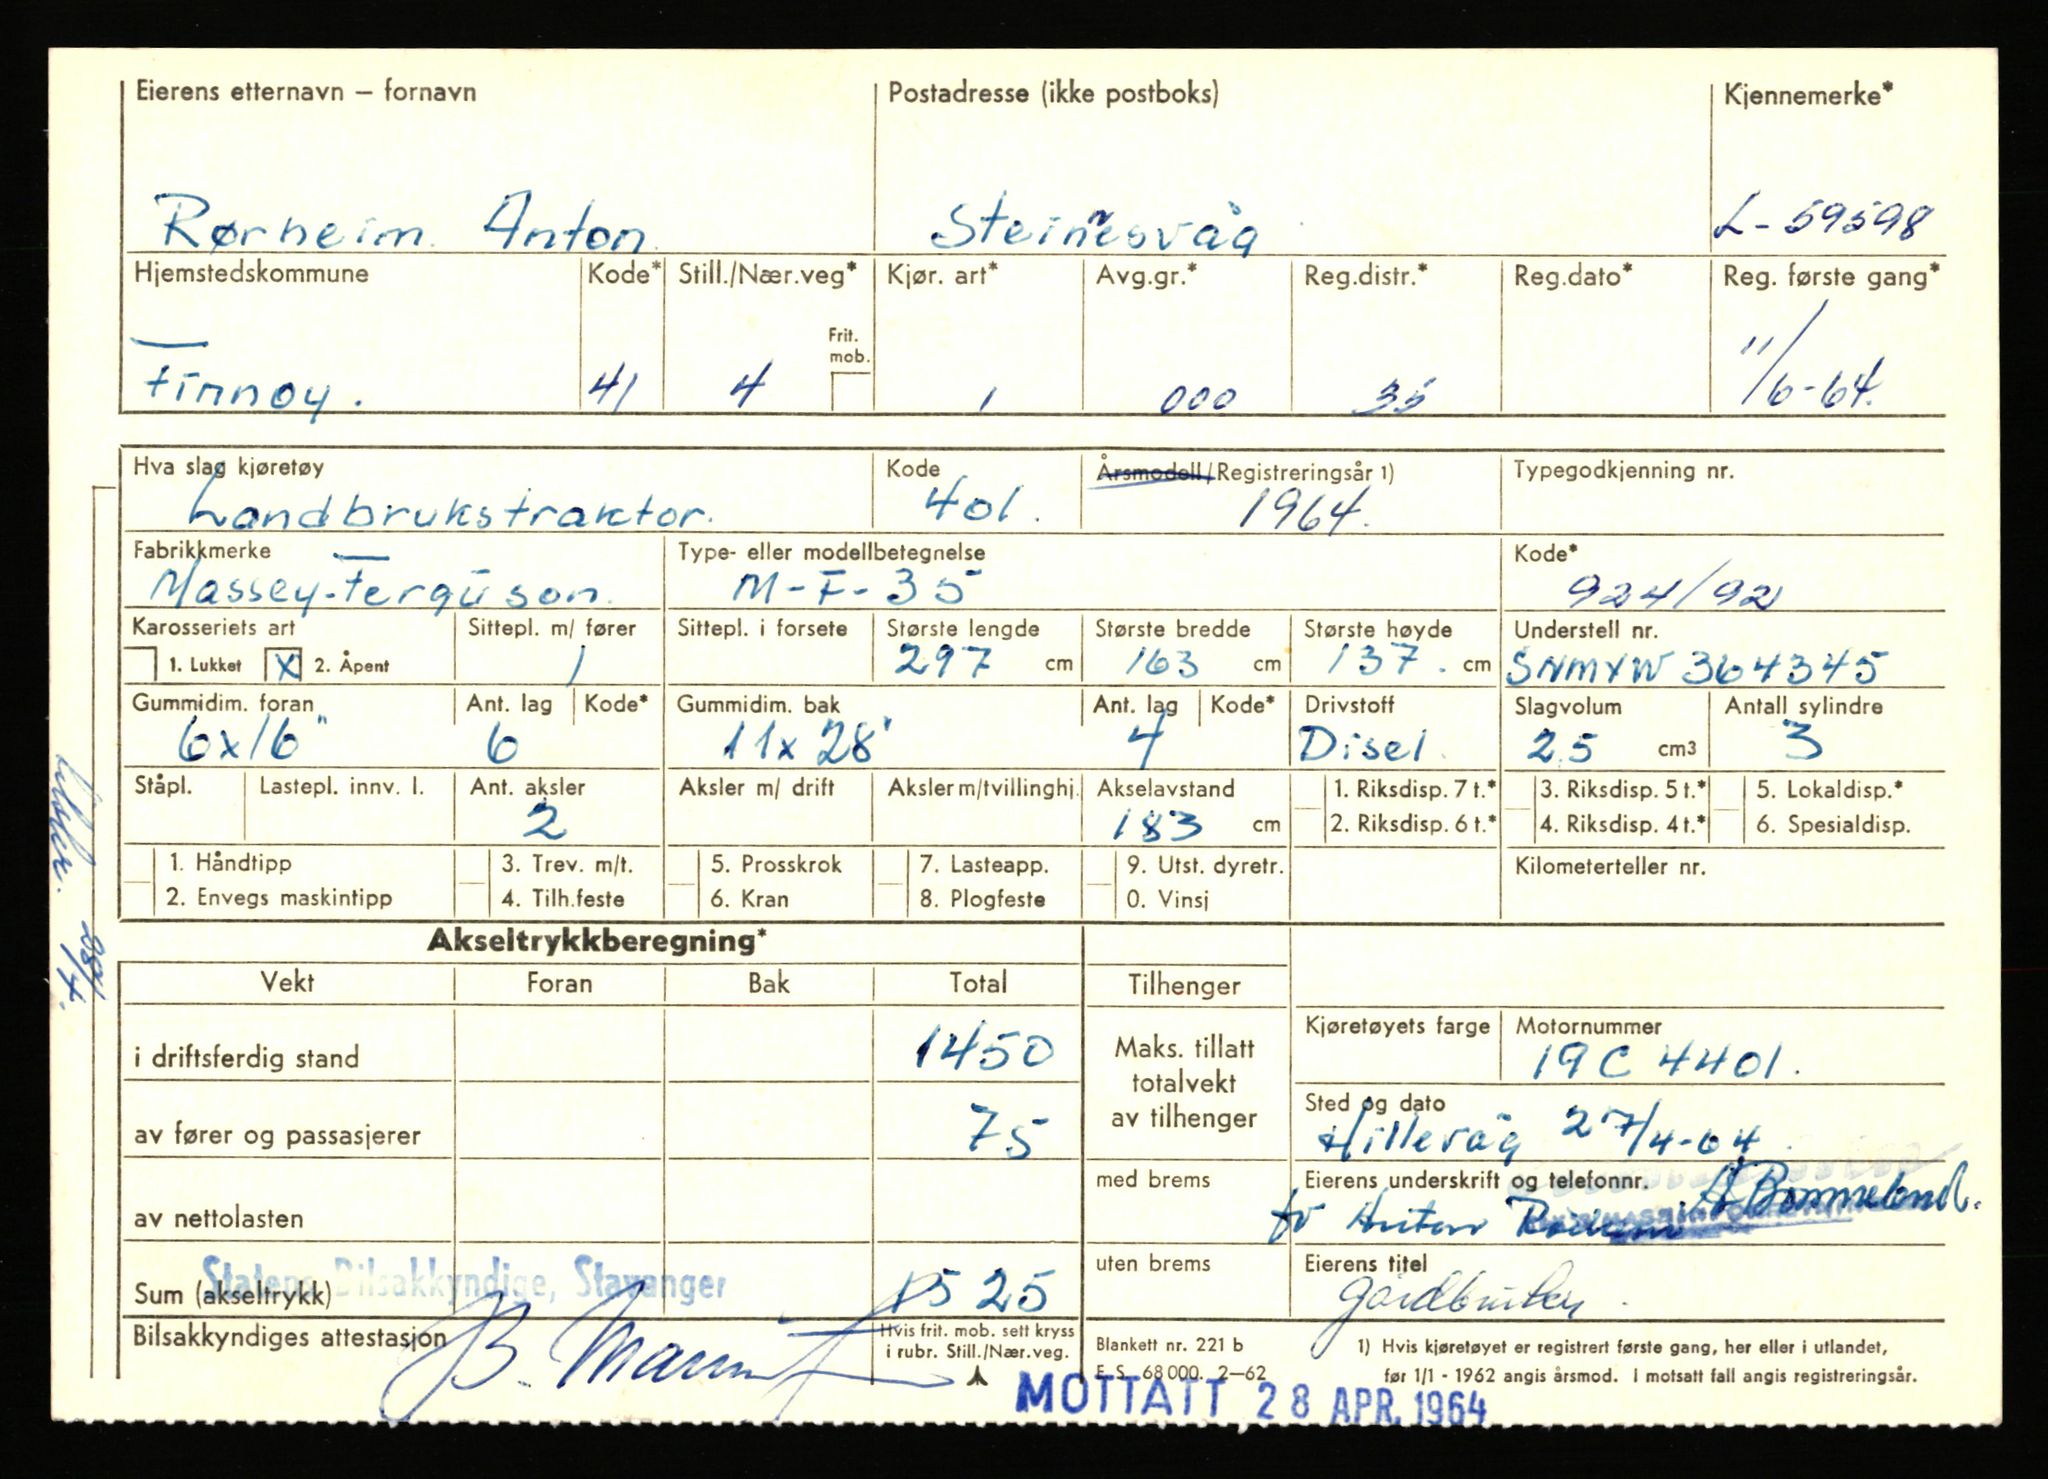 Eierens etternavn – fornavn Postadresse (ikke postboks) Kjennemerke*
Rørheim Anton Steinnesvåg L-59598
Hjemstedskommune Kode* Still./Nær.veg* Kjør. art* Avg.gr.* Reg.distr.* Reg.dato* Reg. første gang*
Frit. mob.
Finnøy. 41 4 1 000 35 11/6-64.
Hva slag kjøretøy Kode Årsmodell/Registreringsår 1) Typegodkjenning nr.
Landbrukstraktor. 401. 1964.
Fabrikkmerke Type- eller modellbetegnelse Kode*
Massey-Ferguson. M-F-35 924/92
Karosseriets art Sittepl. m/ fører Sittepl. i forsete Største lengde Største bredde Største høyde Understell nr.
1. Lukket X 2. Åpent 1 297 cm 163 cm 137. cm SNMYW 364345
Gummidim. foran Ant. lag Kode* Gummidim. bak Ant. lag Kode* Drivstoff Slagvolum Antall sylindre
6x16" 6 11x28" 4 Disel. 2.5 cm3 3
Ståpl. Lastepl. innv. l. Ant. aksler Aksler m/ drift Aksler m/tvillinghj. Akselavstand 1. Riksdisp. 7 t.* 3. Riksdisp. 5 t.* 5. Lokaldisp.*
2 183 cm 2. Riksdisp. 6 t.* 4. Riksdisp. 4 t.* 6. Spesialdisp.
1. Håndtipp 3. Trev. m/t. 5. Prosskrok 7. Lasteapp. 9. Utst. dyretr. Kilometerteller nr.
2. Envegs maskintipp 4. Tilh.feste 6. Kran 8. Plogfeste 0. Vinsj
Akseltrykkberegning*
Vekt Foran Bak Total Tilhenger
i driftsferdig stand 1450 Maks. tillatt totalvekt av tilhenger Kjøretøyets farge Motornummer
19C 4401.
av fører og passasjerer 75 Sted og dato
Hillevåg 27/4-64.
av nettolasten med brems Eierens underskrift og telefonnr.
for Anton Rørheim A Bommeland.
Statens Bilsakkyndige, Stavanger
Sum (akseltrykk) 1525 uten brems Eierens titel
Gårdbruker.
Bilsakkyndiges attestasjon Hvis frit. mob. sett kryss i rubr. Still./Nær.veg.
Blankett nr. 221 b
E.S. 68 000. 2–62
1) Hvis kjøretøyet er registrert første gang, her eller i utlandet,
før 1/1 - 1962 angis årsmod. I motsatt fall angis registreringsår.
MOTTATT 28 APR. 1964
28/4.